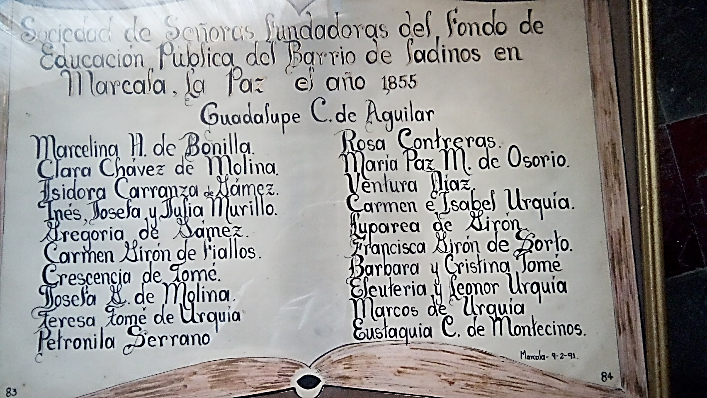 Sociedad de Señoras fundadoras del fondo de
Educación Pública del Barrio de Ladinos en
Marcala, La Paz el año 1855
Guadalupe C. de Aguilar
Marcelina H. de Bonilla.
Clara Chávez de Molina.
Isidora Carranza de Gámez.
Inés, Josefa y Julia Murillo.
Gregoria de Gámez.
Carmen Girón de Fiallos.
Crescencia de Tomé.
Josefa G. de Molina.
Teresa Tomé de Urquía
Petronila Serrano
83
Rosa Contreras.
María Paz M. de Osorio.
Ventura Díaz.
Carmen e Isabel Urquía.
Luparea de Girón
Francisca Girón de Sorto.
Barbara y Cristina Tomé
Eleuteria y Leonor Urquía
Marcos de Urquía
Eustaquia C. de Montecinos.
Marcala- 9-2-91.
84